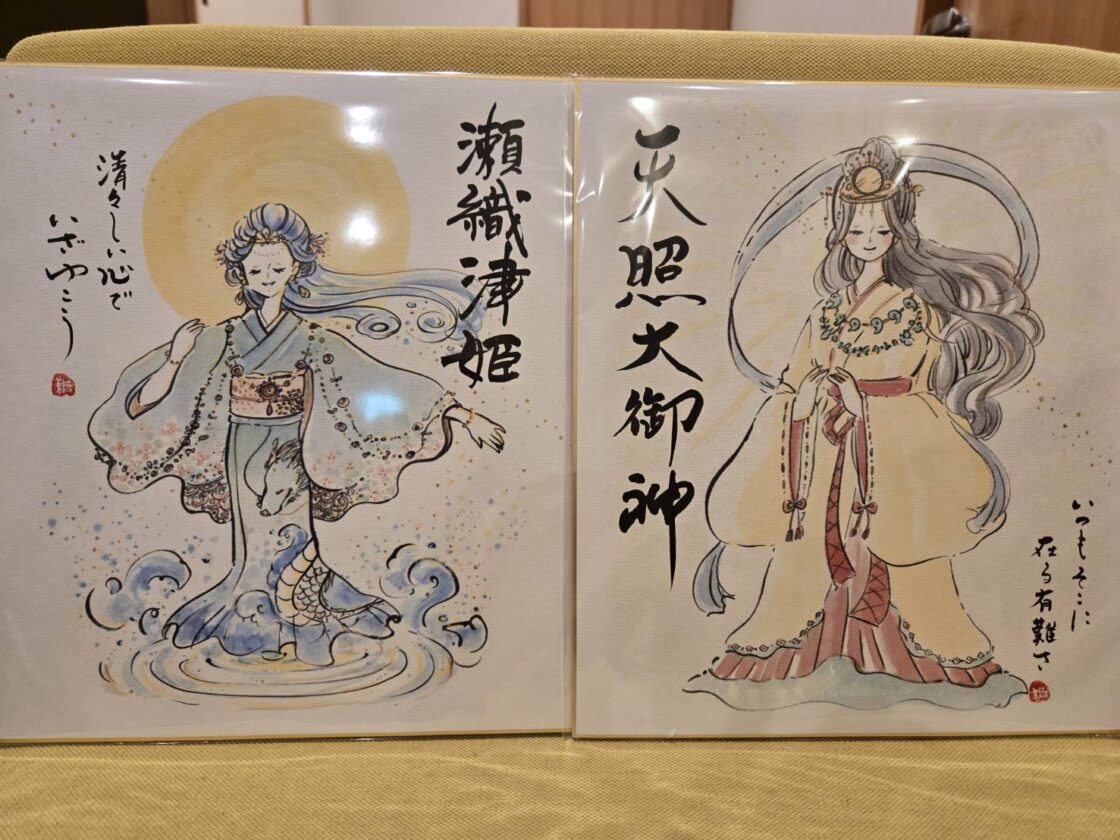 瀬織津姫
清々しい心で
いざゆこう
天照大御神
いつもそこに
在る有難さ